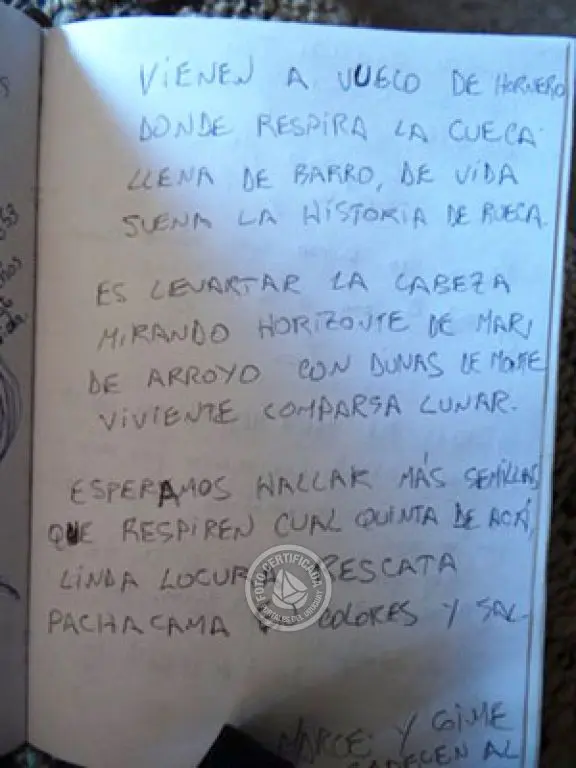 VIENEN A VUELO DE HORNERO
DONDE RESPIRA LA CUECA
LLENA DE BARRO, DE VIDA
SUENA LA HISTORIA DE RUECA.
ES LEVANTAR LA CABEZA
MIRANDO HORIZONTE DE MAR,
DE ARROYO CON DUNAS DE MONTE
VIVIENTE COMPARSA LUNAR.
ESPERAMOS HALLAR MÁS SEMILLAS
QUE RESPIREN CUAL QUINTA DE ACÁ,
LINDA LOCURA RESCATA
PACHACAMA COLORES Y SAL.
FOTO CERTIFICADA
PORTALES DEL URUGUAY
MARCE Y GIME
AL